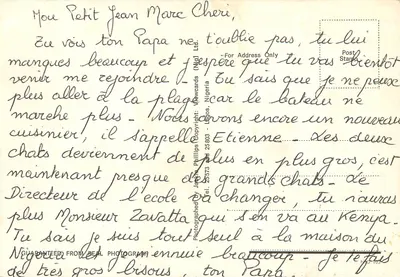 Mon Petit Jean Marc Cheri,
Tu vois ton Papa ne t'oublie pas, tu lui
manques beaucoup et j'espère que tu vas bientôt
venir me rejoindre - Tu sais que je ne peux
plus aller à la plage car le bateau ne
marche plus - Nous avons encore un nouveau
cuisinier, il s'appelle Etienne - Les deux
chats deviennent de plus en plus gros, c'est
maintenant presque des grands chats - Le
Directeur de l'ecole va changer, tu n'auras
plus Monsieur Zavatta qui s'en va au Kenya.
Tu sais je suis tout seul à la maison du
et je m'ennuie beaucoup - Je te fais
de très gros bisous, ton Papa
For Address Only
Post
Stamp
GUARANTEED FROM REAL PHOTOGRAPH